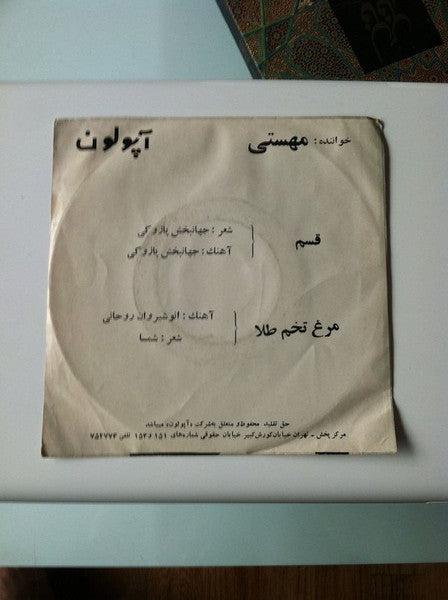 خواننده : مهستی
آپولون
قسم
شعر : جهانبخش پازوکی
آهنك : جهانبخش پازوکی
مرغ تخم طلا
آهنك : انوشیروان روحانی
شعر : شمسا
حق تقلید محفوظ و متعلق به شرکت «آپولون» میباشد
مرکز پخش - تهران خیابان کورش کبیر خیابان حقوقی شماره‌های ۱۵۱ و ۱۵۳ تلفن ۷۵۲۷۷۴